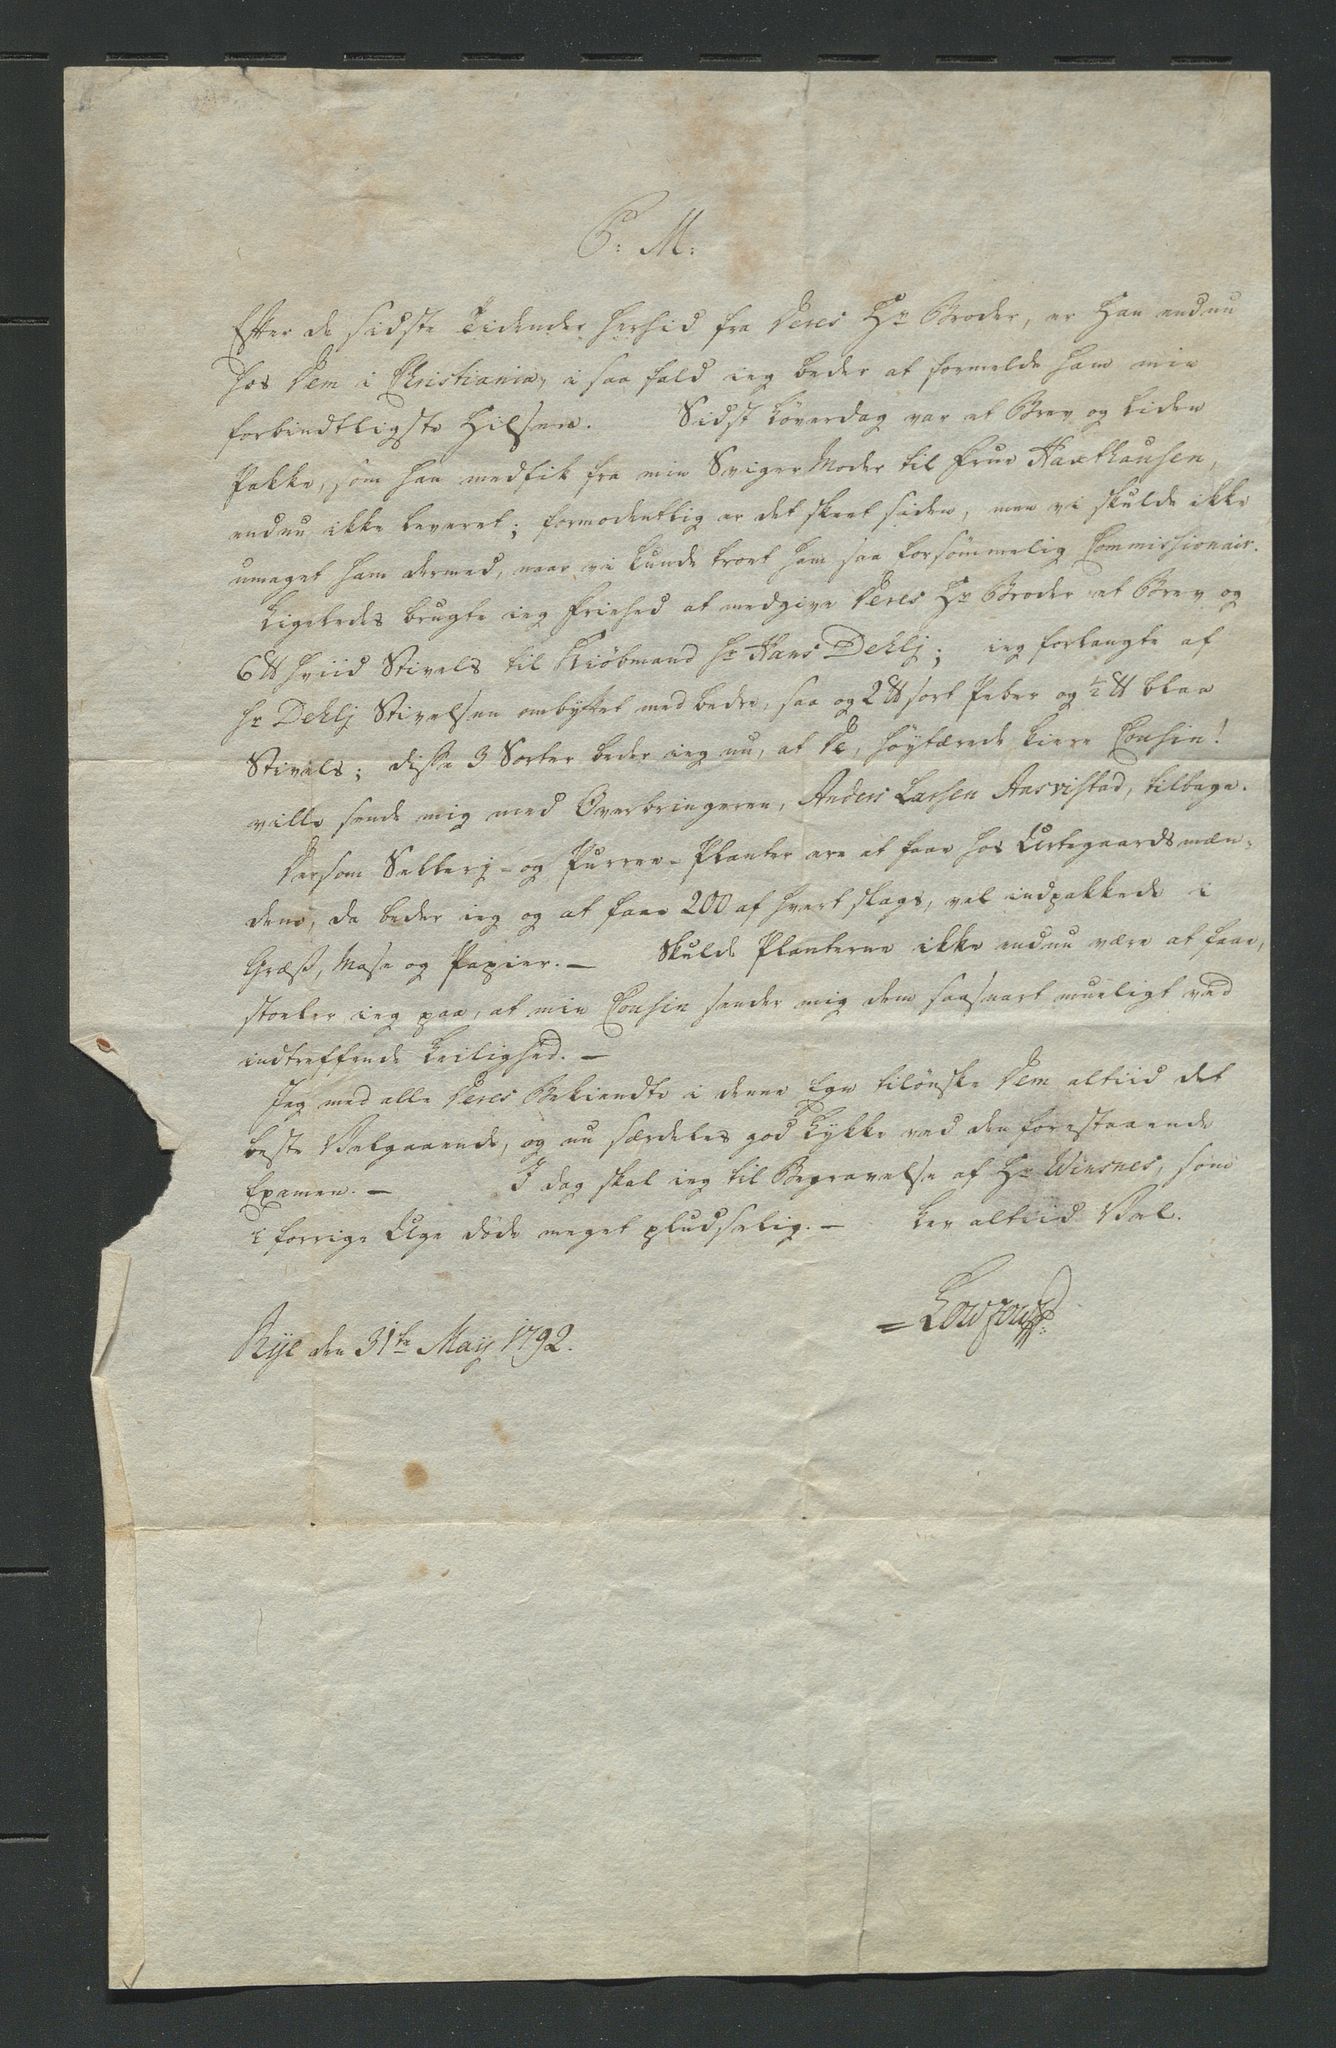 P: M:
Efter de sidste Tidender herhid fra Deres Hr Broder, er Han endnu
hos Dem i Christiania, i saa fald ieg beder at formelde ham min
forbindtligste Hilsen. Sidst Løverdag var et Brev og liden
Pakke, som han medfik fra min SvigerModer til Frue Haxthausen,
endnu ikke leveret; formodentlig er det skeet siden, men vi skulde ikke
umaget ham dermed, naar vi kunde troet ham saa forsømmelig Commissionair.
Ligeledes brugte ieg Friehed at medgive Deres Hr Broder et Brev og
6 ℔ hviid Stivels til Kiøbmand Hr Hans Dehlj; ieg forlangte af
Hr Dehlj Stivelsen ombyttet med bedre, saa og 2 ℔ sort Peber og ½ ℔ blaa
Stivels; disse 3 Sorter beder ieg nu, at De, høystærede kiere Cousin!
ville sende mig med Overbringeren, Anders Larsen Ansvistad, tilbage.
Dersom Sellerj- og Purren-Planter ere at faae hos Urtegaardsmæn-
dene, da beder ieg og at faae 200 af hvert slags, vel indpakkede i
Græss, Mose og Papier. — Skulde Planterne ikke endnu være at faae,
stoeler ieg paa, at min Cousin sender mig dem saasnart mueligt ved
indtreffende Leilighed. —
Jeg med alle Deres Bekiendte i denne Egn tilønske Dem altiid det
beste Velgaaende, og nu særdeles god Lykke ved den forestaaende
Examen. — I dag skal ieg til Begravelse af Hr Winsnes, som
i forrige Uge døde meget pludselig. — Lev altiid Vel.
Lowzow
Rye den 31te Maij 1792.